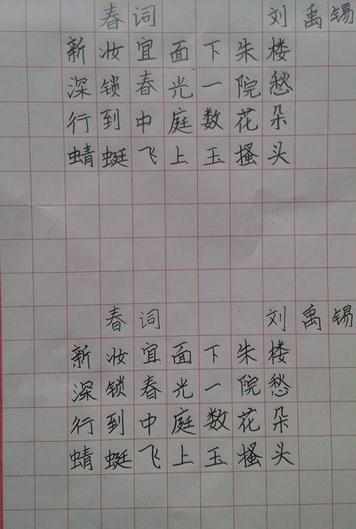 春词 刘禹锡
新妆宜面下朱楼
深锁春光一院愁
行到中庭数花朵
蜻蜓飞上玉搔头
春词 刘禹锡
新妆宜面下朱楼
深锁春光一院愁
行到中庭数花朵
蜻蜓飞上玉搔头